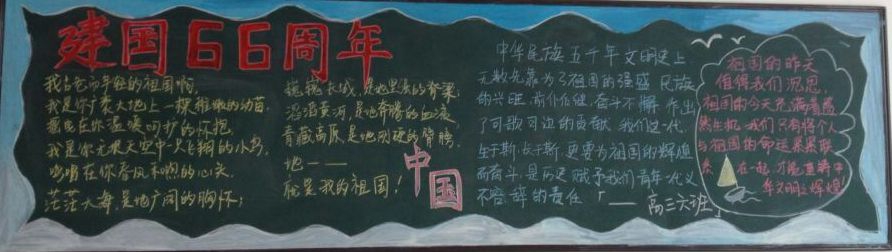 建国66周年
我古老而年轻的祖国啊,
我是你广袤大地上一棵稚嫩的幼苗,
摇曳在你温暖呵护的怀抱,
我是你无垠天空中一只飞翔的小鸟,
鸣唱在你春风和煦的心头.
茫茫大海,是她广阔的胸怀;
巍巍长城,是她坚强的脊梁,
滔滔黄河,是她奔腾的血液
青藏高原是她刚硬的臂膀,
她——
就是我的祖国!
中国
中华民族五千年文明史上
无数先辈为了祖国的强盛 民族
的兴旺 前仆后继 奋斗不懈 作出
了可歌可泣的贡献 我们这一代
生于斯,长于斯,更要为祖国的辉煌
而奋斗,是历史赋予我们青年一代义
不容辞的责任
「——高三六班」
祖国的昨天
值得我们沉思,
祖国的今天充满着盎
然生机,我们只有将个人
与祖国的命运紧紧联
系在一起,才能重铸中
华文明之辉煌!